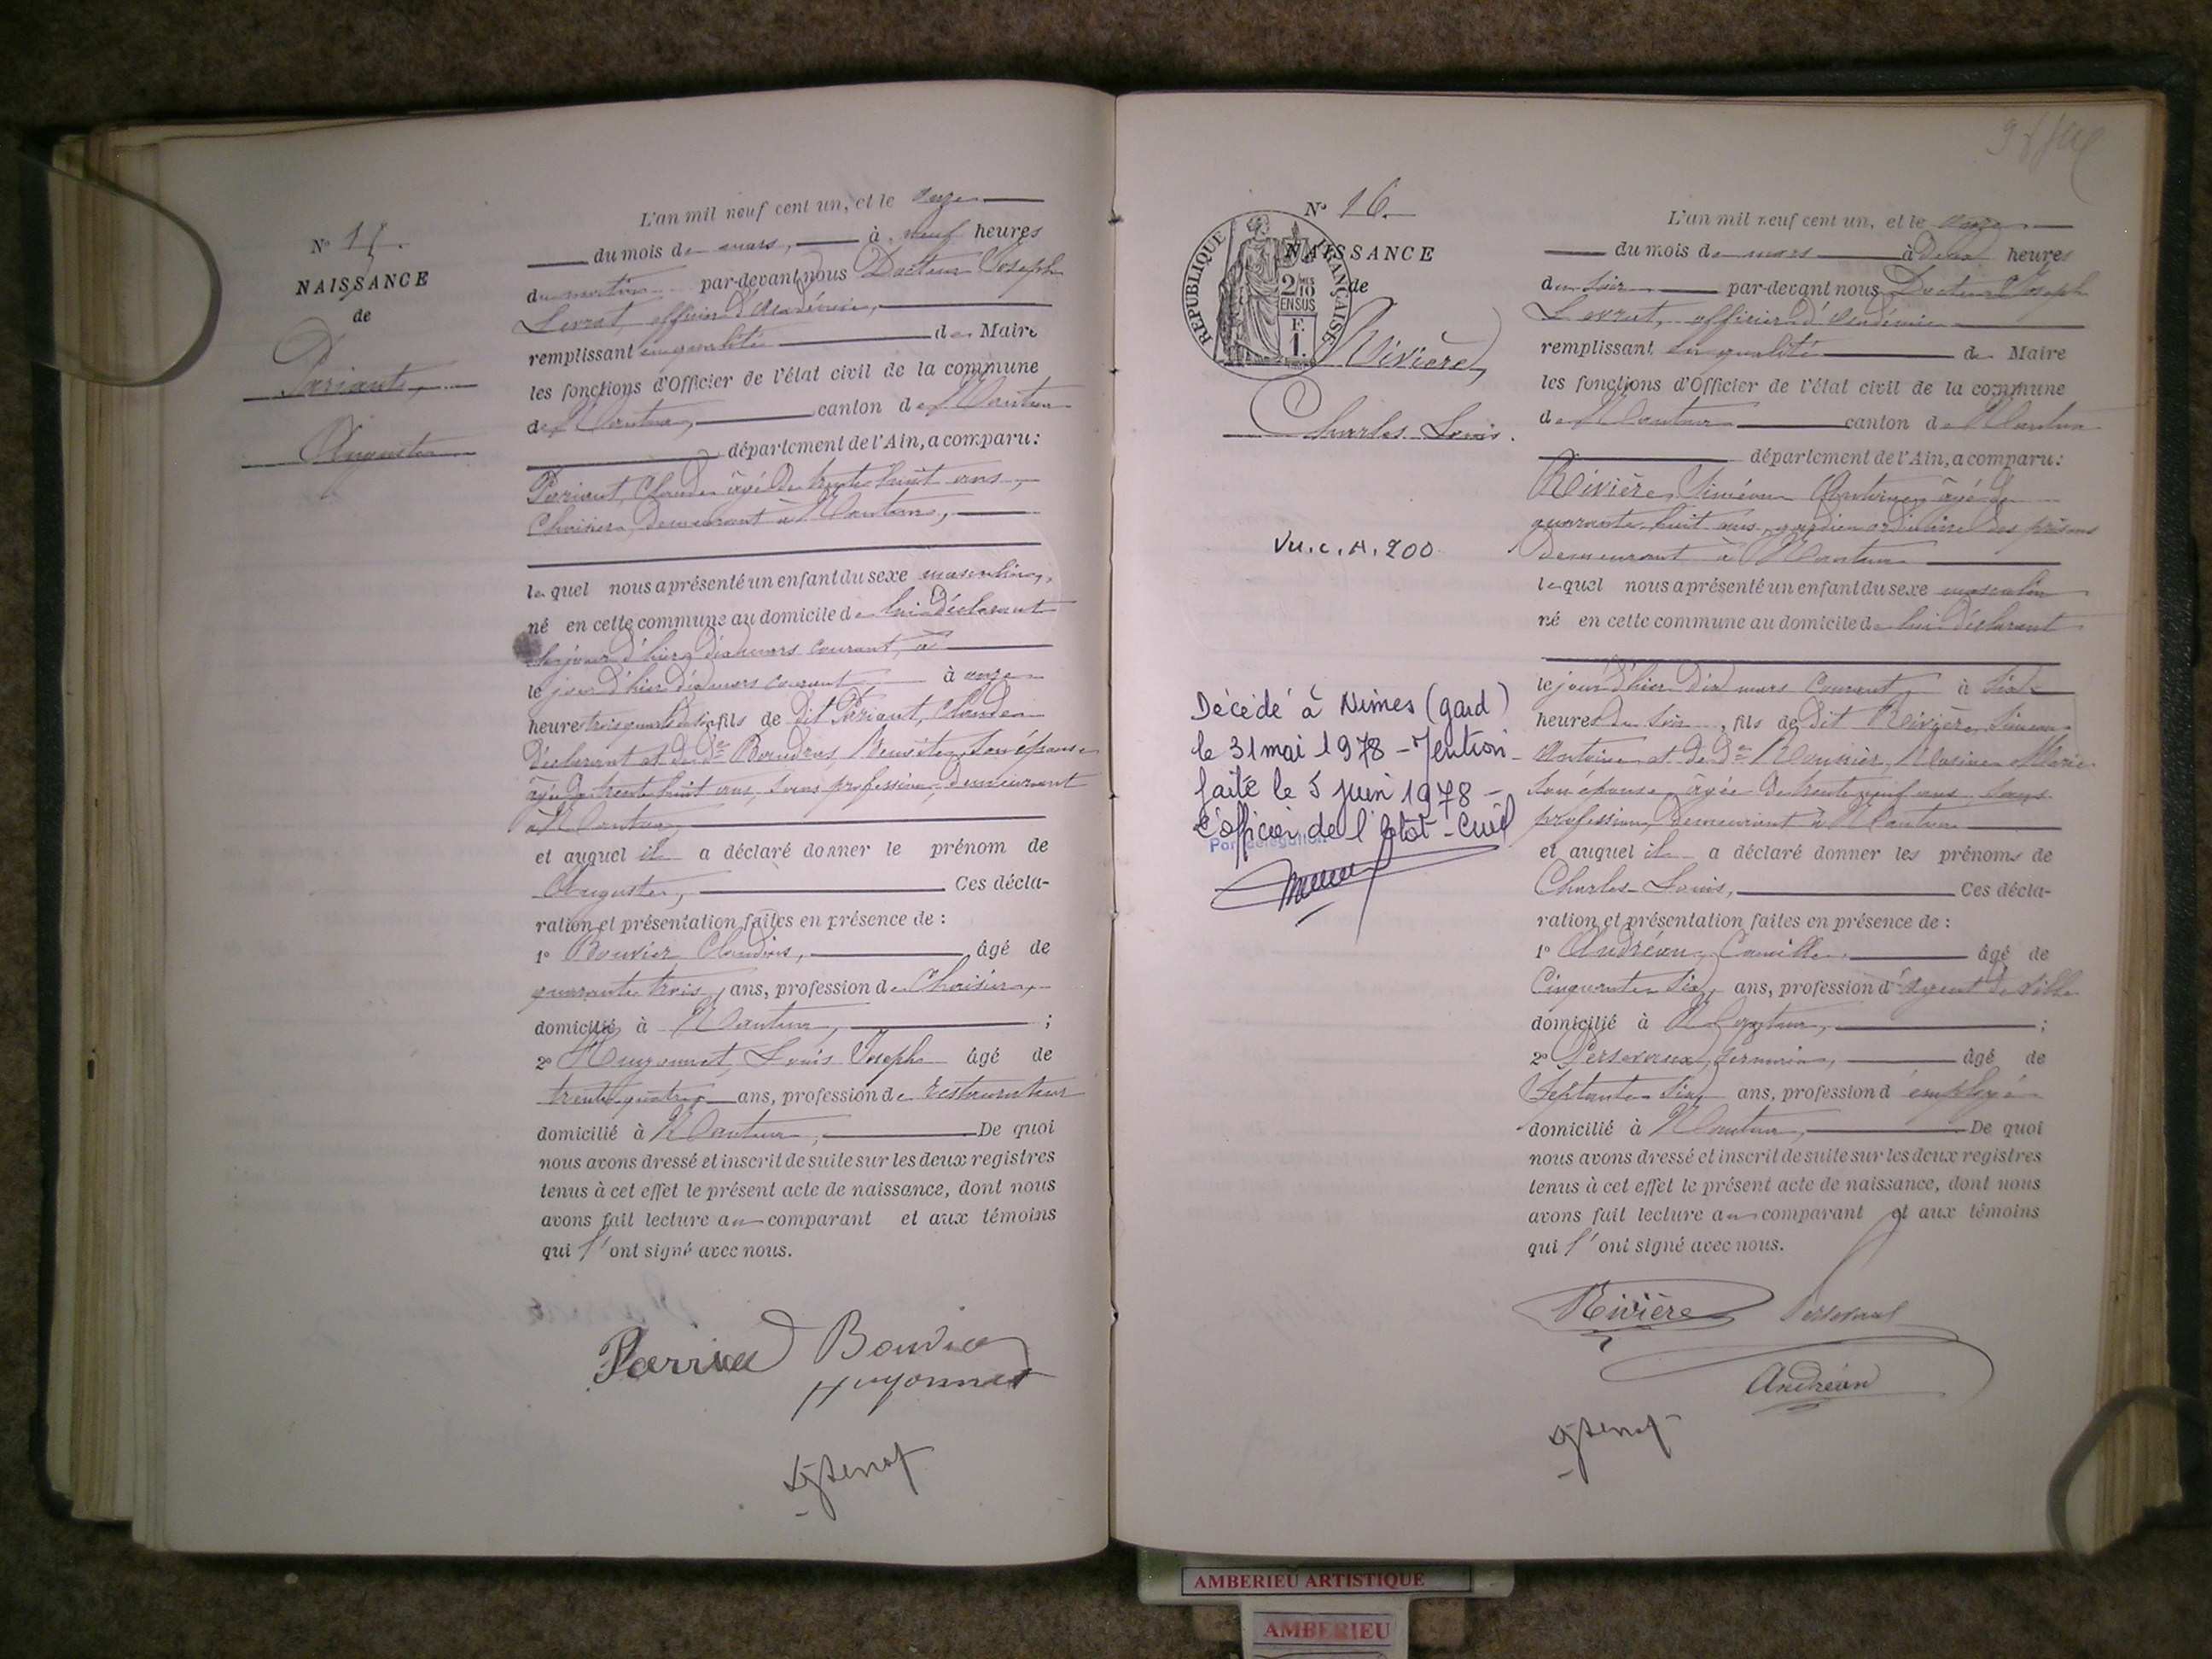 N° 15.
NAISSANCE
de
Pariant,
Auguste
L'an mil neuf cent un, et le onze
du mois de mars, à neuf heures
du matin par-devant nous Docteur Joseph
Levrat, officier d'Académie,
remplissant en qualité de Maire
les fonctions d'Officier de l'état civil de la commune
de Nantua, canton de Nantua
département de l'Ain, a comparu:
Pariant, Claude âgé de trente huit ans,
Chaisier, demeurant à Nantua,
lequel nous a présenté un enfant du sexe masculin,
né en cette commune au domicile de lui déclarant
le jour d'hier dix mars courant, à
le jour d'hier dix mars courant, à onze
heures trois quarts du soir fils de dit Pariant, Claude
déclarant et de de son épouse
âgée de trente huit ans, sans profession, demeurant
à Nantua,
et auquel il a déclaré donner le prénom de
Auguste, Ces décla-
ration et présentation faites en présence de :
1° Bouvier Claudius, âgé de
quarante trois ans, profession de Chaisier,
domicilié à Nantua, ;
2° Huyonnet, Louis Joseph âgé de
trente quatre ans, profession de restaurateur
domicilié à Nantua, De quoi
nous avons dressé et inscrit de suite sur les deux registres
tenus à cet effet le présent acte de naissance, dont nous
avons fait lecture au comparant et aux témoins
qui l'ont signé avec nous.
Bouvier
Huyonnet
N° 16.
NAISSANCE
de
RÉPUBLIQUE FRANÇAISE
2/10
EN SUS
F.
1.
Rivière,
Charles Louis.
Vu. C. A. 200
Décédé à Nimes (gard)
le 31 mai 1978 - Mention
faite le 5 juin 1978 -
L'officier de l'Etat-Civil
Par délégation
L'an mil neuf cent un, et le onze
du mois de mars à deux heures
du soir par-devant nous Docteur Joseph
Levrat, officier d'Académie
remplissant en qualité de Maire
les fonctions d'Officier de l'état civil de la commune
de Nantua canton de Nantua
département de l'Ain, a comparu:
Rivière, Siméon Antoine, âgé de
quarante huit ans, gardien ordinaire des prisons
demeurant à Nantua
lequel nous a présenté un enfant du sexe masculin
né en cette commune au domicile de lui déclarant
le jour d'hier dix mars courant, à six
heures du soir, fils de dit Rivière, Siméon
Antoine et de de Marie
son épouse, âgée de trente neuf ans, sans
profession, demeurant à Nantua
et auquel il a déclaré donner les prénoms de
Charles Louis, Ces décla-
ration et présentation faites en présence de :
1° Andréan, Camille, âgé de
Cinquante six, ans, profession d'agent de ville
domicilié à Nantua, ;
2° Germain, âgé de
Septante six, ans, profession d'employé
domicilié à Nantua, De quoi
nous avons dressé et inscrit de suite sur les deux registres
tenus à cet effet le présent acte de naissance, dont nous
avons fait lecture au comparant et aux témoins
qui l'ont signé avec nous.
Rivière
Andréan
AMBERIEU ARTISTIQUE
AMBERIEU